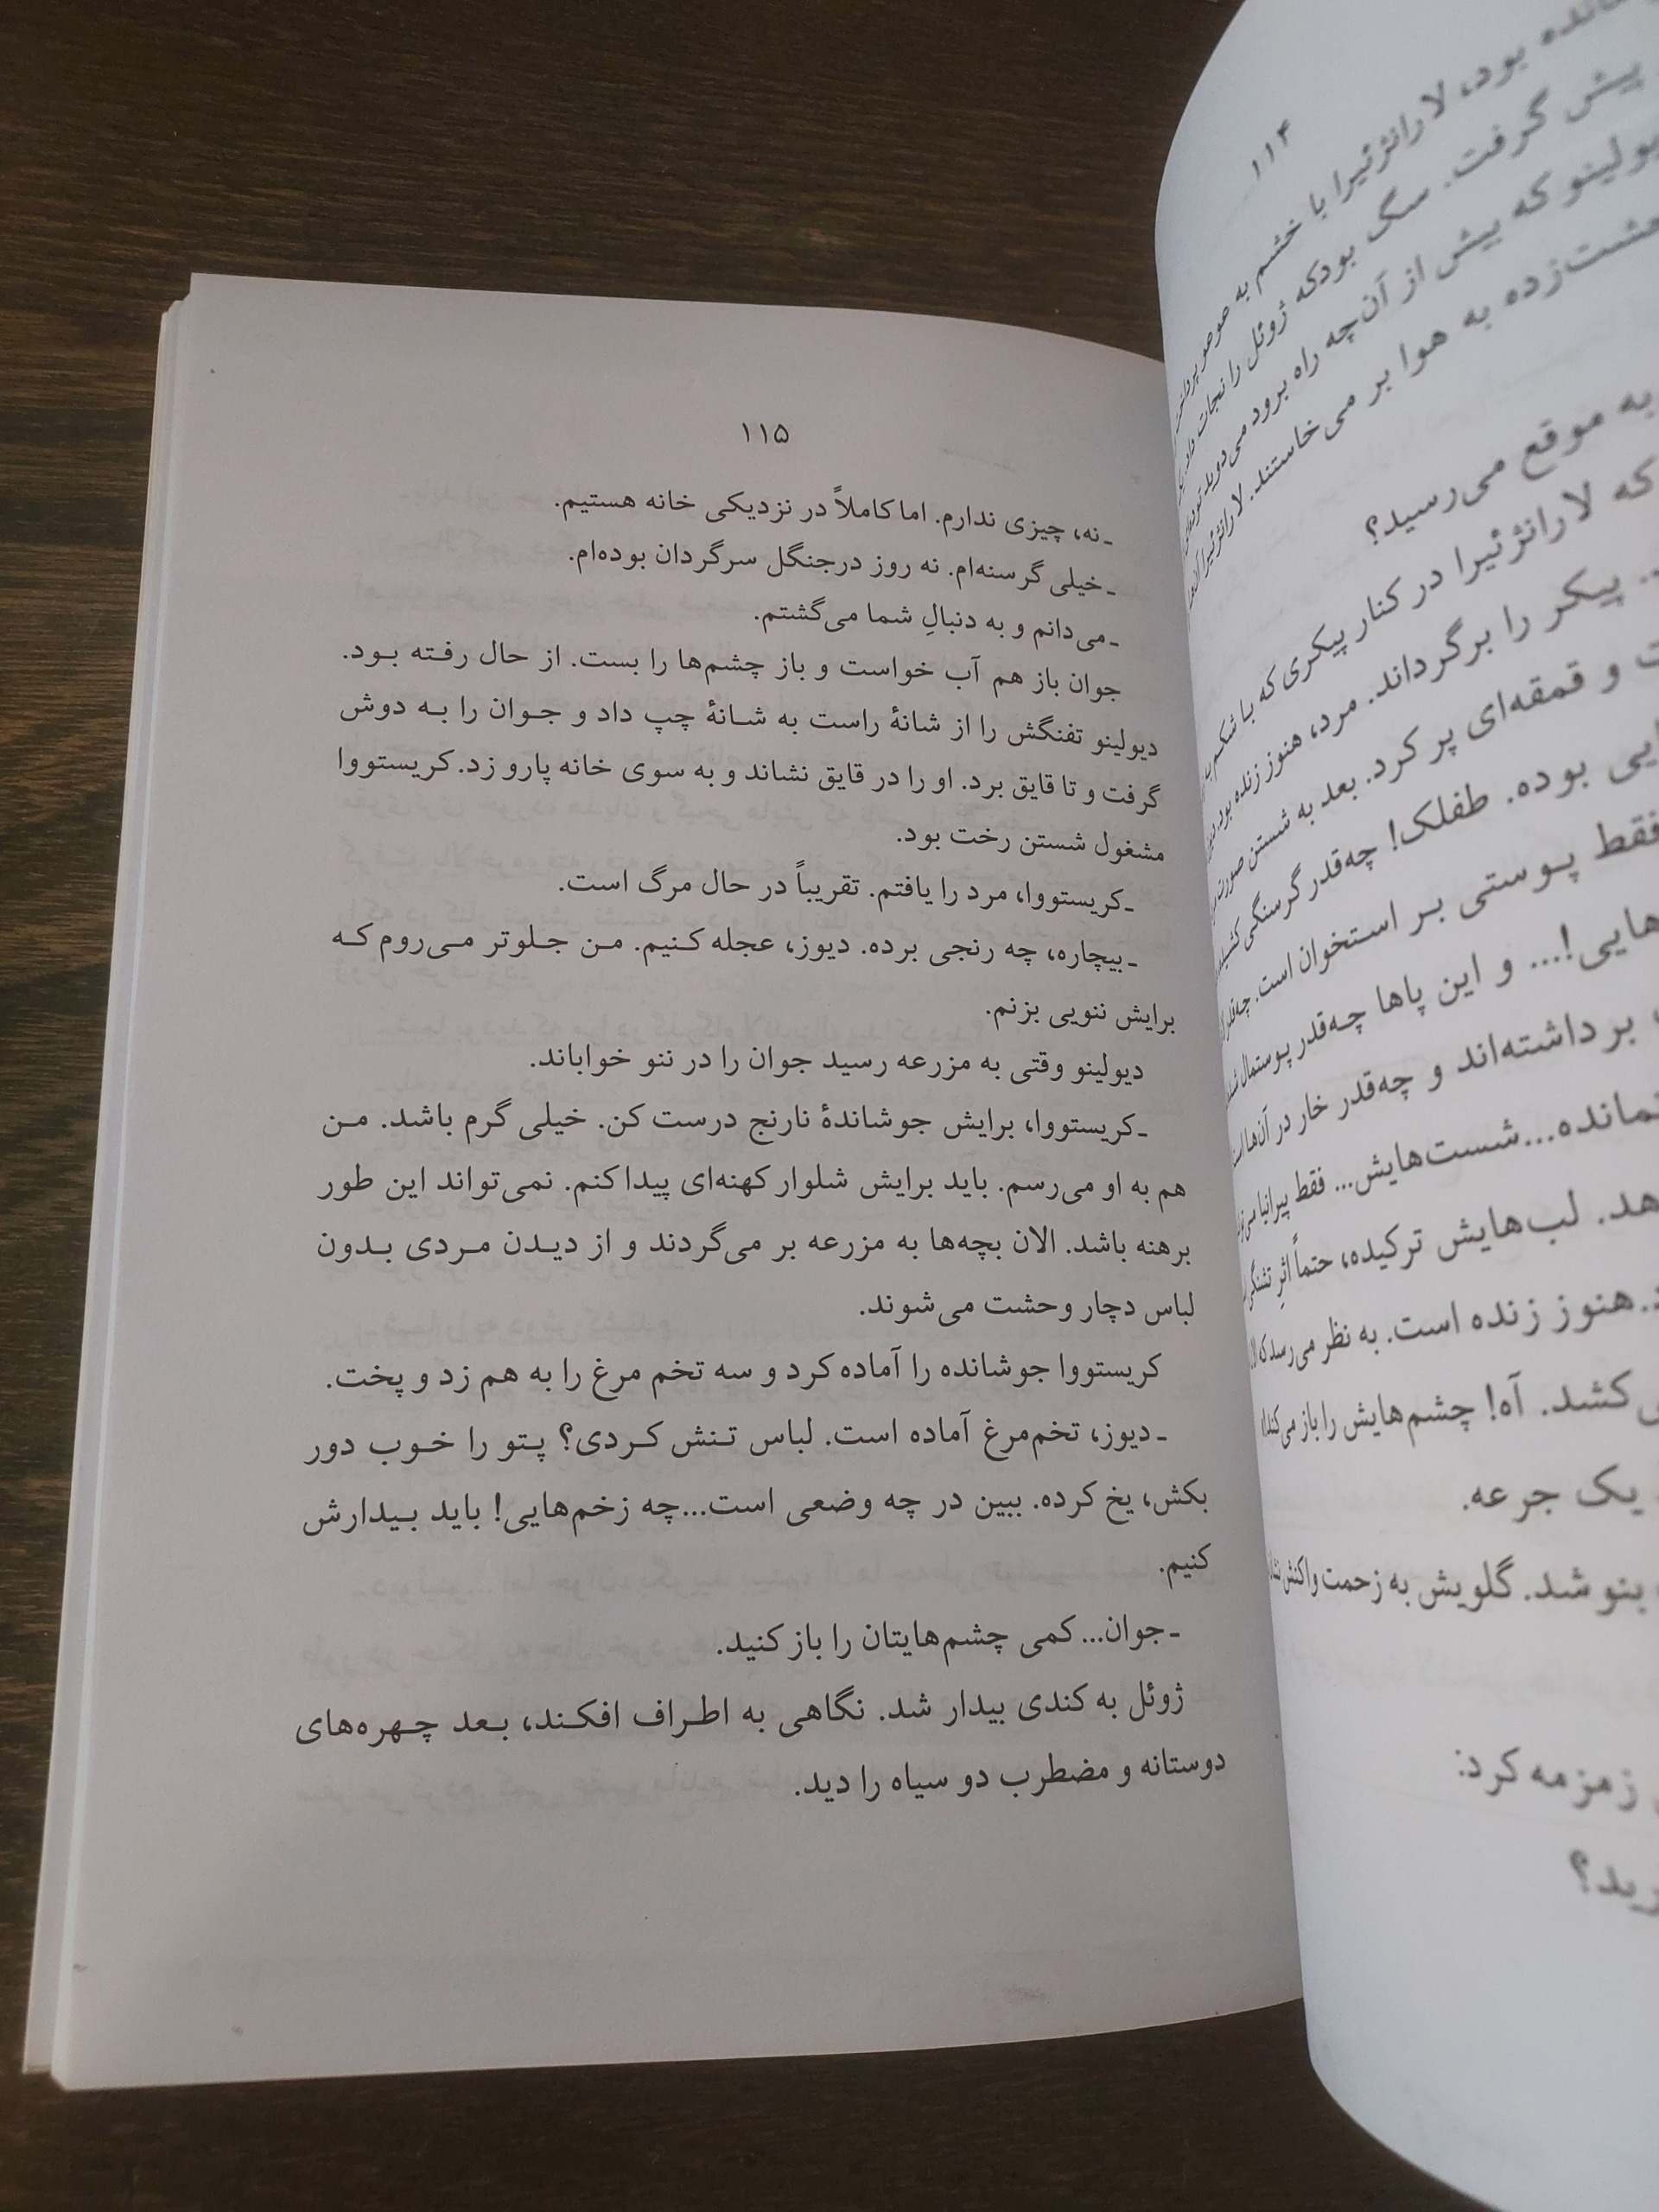 ۱۱۴
مانده بود، لارانژئیرا با خشم به
پیش گرفت. سگ بودکه ژوئل را نجات داد.
دیولینو که بیش از آن‌چه راه برود می‌دوید
وحشت‌زده به هوا بر می‌خاستند. لارانژئیرا
به موقع می‌رسید؟
که لارانژئیرا در کنار پیکری که با شکم
پیکر را برگرداند. مرد، هنوز زنده بود.
و قمقمه‌ای پر کرد. بعد به شستن صورت
بوده. طفلک! چه‌قدر گرسنگی کشیده
فقط پوستی بر استخوان است. چه‌قدر
هایی!... و این پاها چه‌قدر پوستمال شده
برداشته‌اند و چه‌قدر خار در آن‌ها است
نمانده...شست‌هایش... فقط پیرانیا
لب‌هایش ترکیده، حتماً اثرِ تشنگی
هنوز زنده است. به نظر می‌رسد که
می‌کشد. آه! چشم‌هایش را باز می‌کند!
یک جرعه.
شد. گلویش به زحمت واکنش
زمزمه کرد:
۱۱۵
ـ نه، چیزی ندارم. اما کاملاً در نزدیکی خانه هستیم.
ـ خیلی گرسنه‌ام. نه روز درجنگل سرگردان بوده‌ام.
ـ می‌دانم و به دنبالِ شما می‌گشتم.
جوان باز هم آب خواست و باز چشم‌ها را بست. از حال رفته بود.
دیولینو تفنگش را از شانهٔ راست به شانهٔ چپ داد و جوان را به دوش
گرفت و تا قایق برد. او را در قایق نشاند و به سوی خانه پارو زد. کریستووا
مشغول شستن رخت بود.
ـ کریستووا، مرد را یافتم. تقریباً در حال مرگ است.
ـ بیچاره، چه رنجی برده. دیوز، عجله کنیم. من جلوتر می‌روم که
برایش ننویی بزنم.
دیولینو وقتی به مزرعه رسید جوان را در ننو خواباند.
ـ کریستووا، برایش جوشاندهٔ نارنج درست کن. خیلی گرم باشد. من
هم به او می‌رسم. باید برایش شلوار کهنه‌ای پیدا کنم. نمی‌تواند این طور
برهنه باشد. الان بچه‌ها به مزرعه بر می‌گردند و از دیدن مردی بدون
لباس دچار وحشت می‌شوند.
کریستووا جوشانده را آماده کرد و سه تخم مرغ را به هم زد و پخت.
ـ دیوز، تخم‌مرغ آماده است. لباس تنش کردی؟ پتو را خوب دور
بکش، یخ کرده. ببین در چه وضعی است...چه زخم‌هایی! باید بیدارش
کنیم.
ـ جوان... کمی چشم‌هایتان را باز کنید.
ژوئل به کندی بیدار شد. نگاهی به اطراف افکند، بعد چهره‌های
دوستانه و مضطرب دو سیاه را دید.